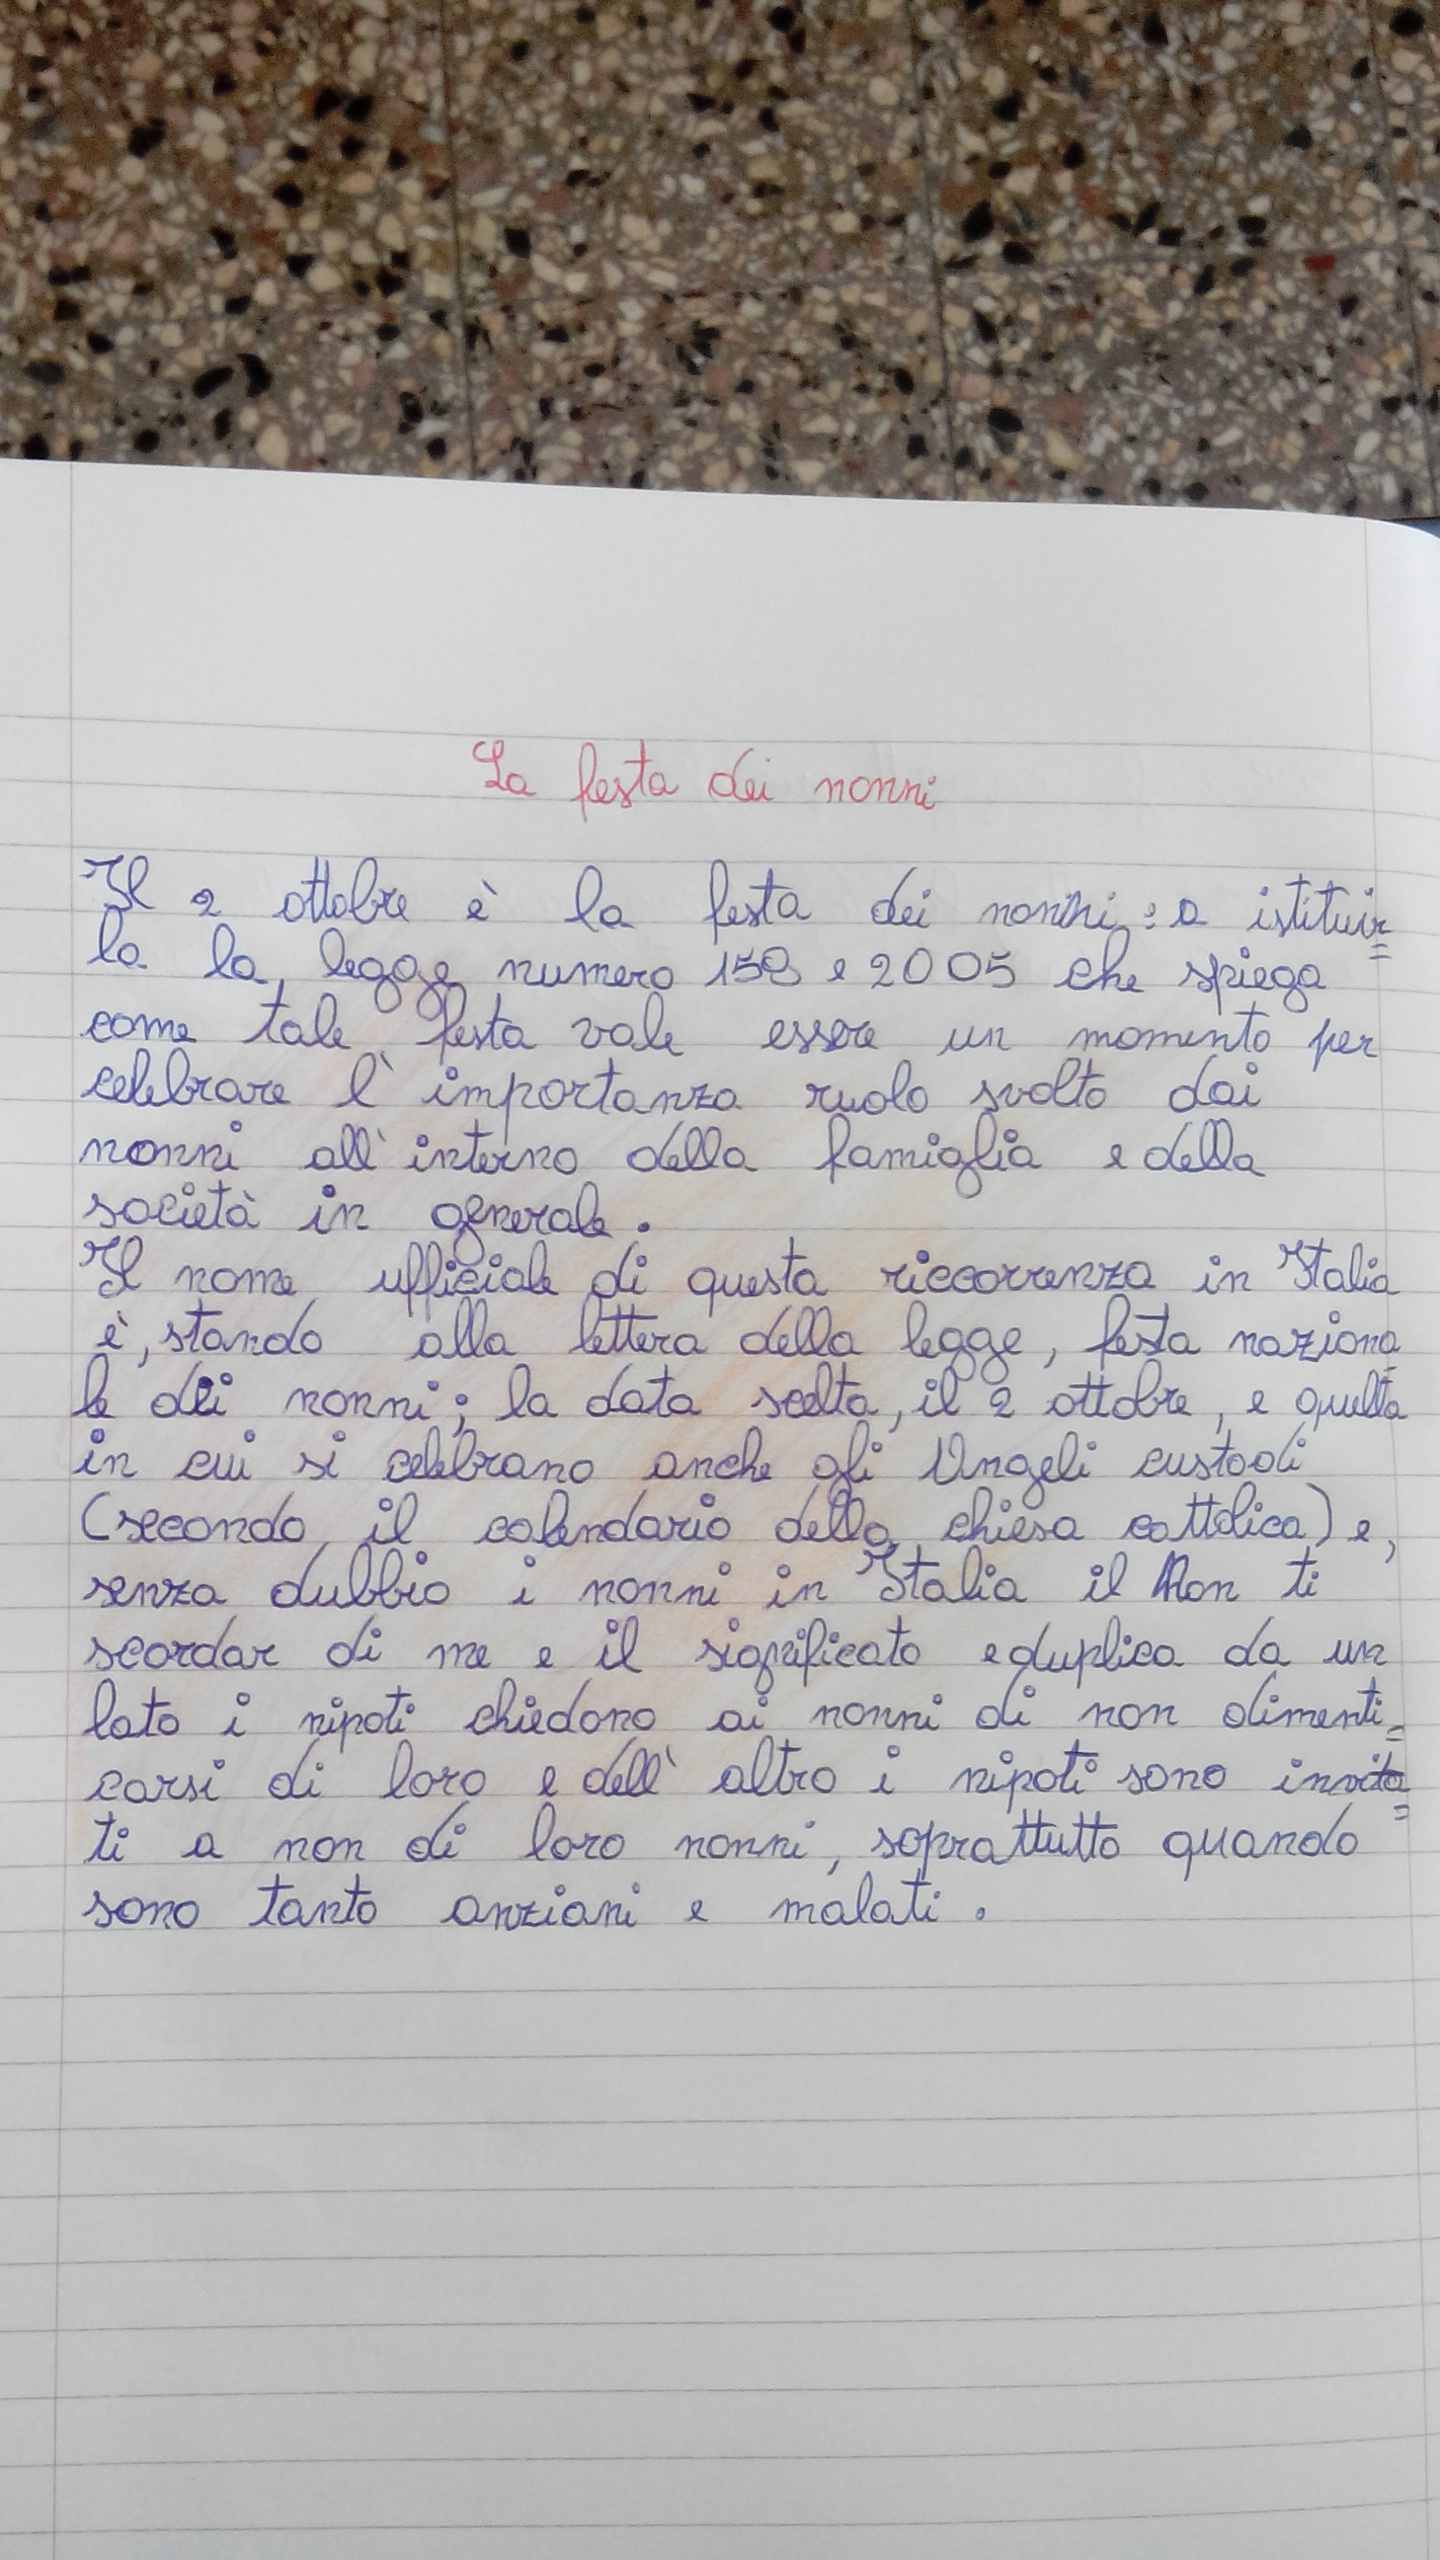 La festa dei nonni
Il 2 ottobre è la festa dei nonni: a istituir=
la la legge numero 159 e 2005 che spiega
come tale festa vale essere un momento per
celebrare l'importanza ruolo svolto dai
nonni all'interno della famiglia e della
società in generale.
Il nome ufficiale di questa riccorrenza in Italia
è, stando alla lettera della legge, festa naziona
le dei nonni; la data scelta, il 2 ottobre, e quella
in cui si celebrano anche gli Angeli custodi
(secondo il calendario della chiesa cattolica) e,
senza dubbio i nonni in Italia il Non ti
scordar di me e il significato e duplica da un
lato i nipoti chiedono ai nonni di non dimenti=
carsi di loro e dell'altro i nipoti sono invita=
ti a non di loro nonni, soprattutto quando
sono tanto anziani e malati.